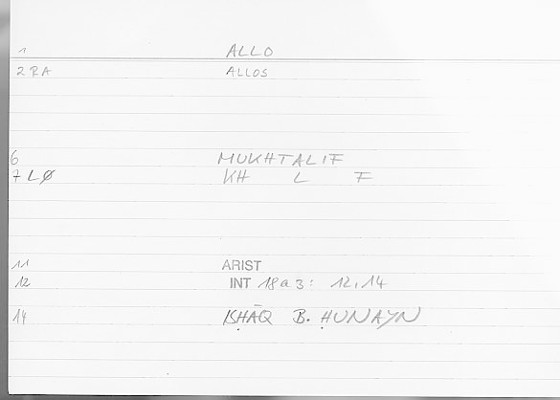 1 ALLO
2 RA ALLOS
6 MUKHTALIF
7 LØ KH L F
11 ARIST
12 INT 18a3: 12,14
14 ISḤĀQ B. ḤUNAYN